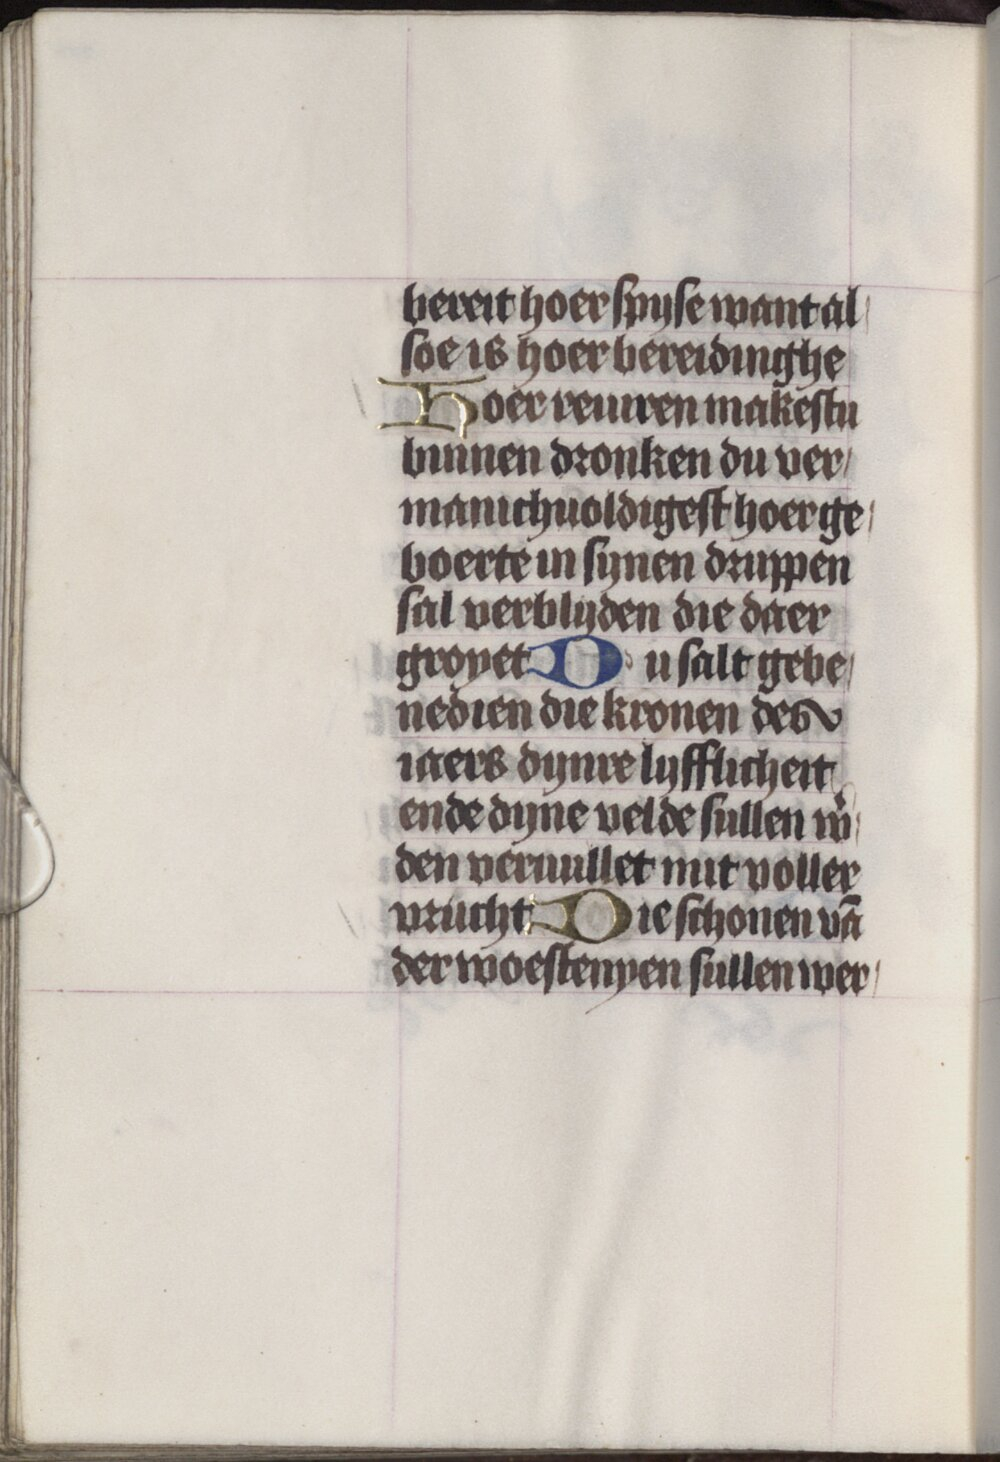 bereit hoer spyse want al/
soe is hoer bereidinghe
Hoer reuiren makestu
binnen dronken du ver/
manichuoldigest hoer ge/
boerte in synen druppen
sal verblyden die daer
groyet Du salt gebe/
nedien die kronen des
iaers dynre lyfflicheit
ende dyne velde sullen w̉/
den veruullet mit voller
vrucht Die schonen vā
der woestenyen sullen wer/